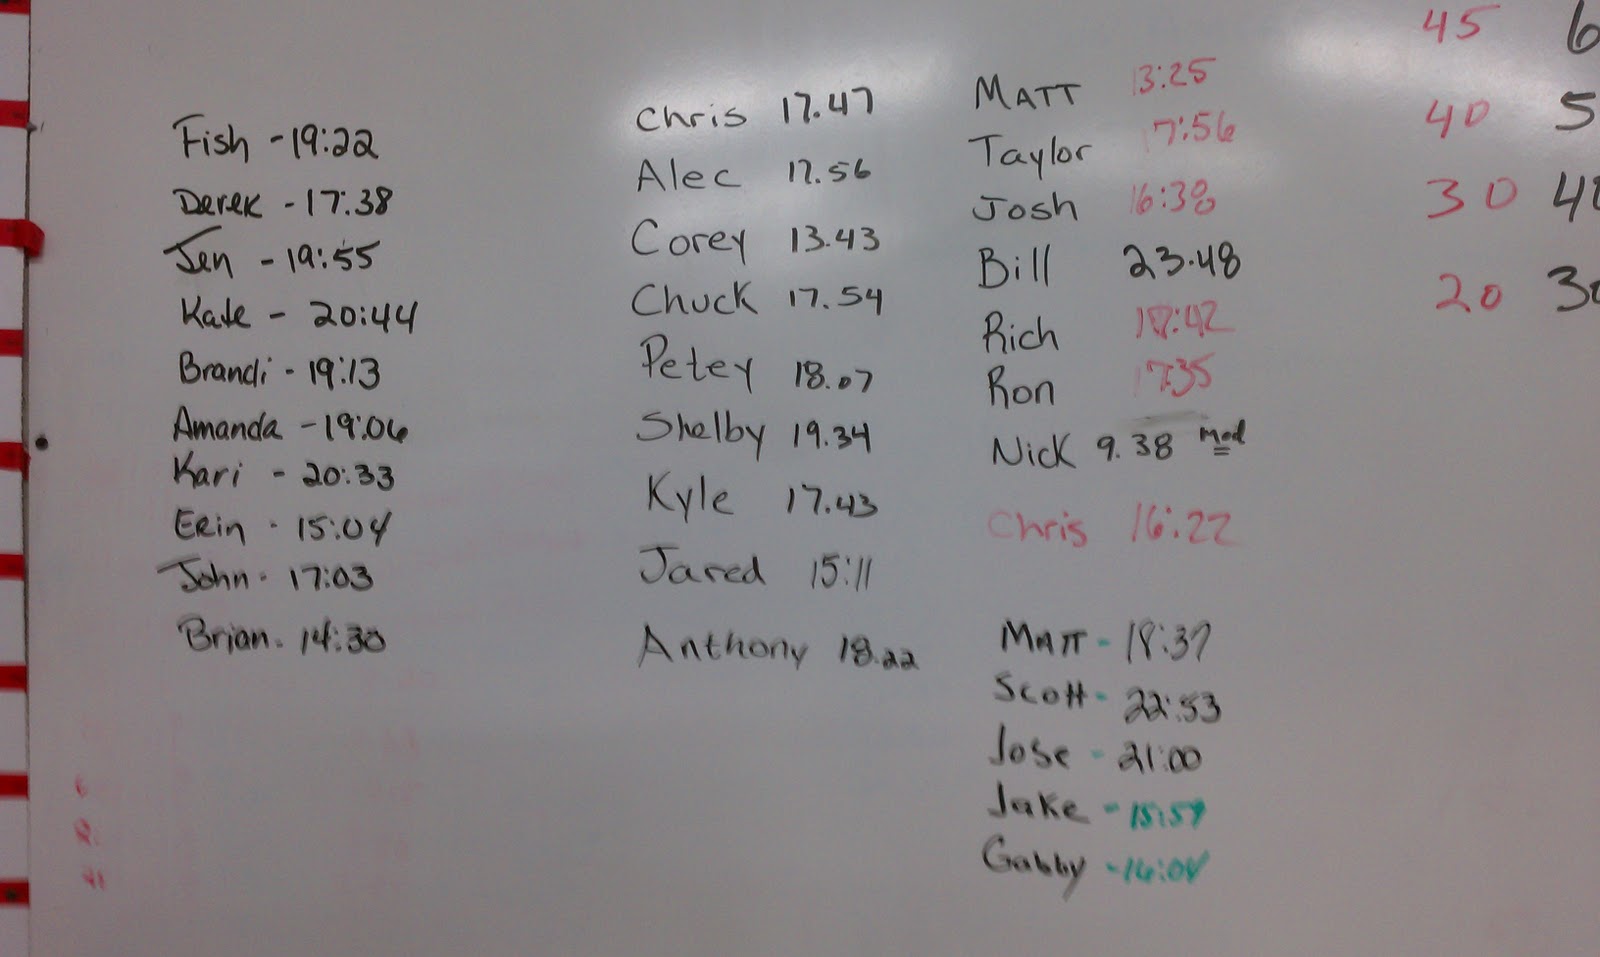 Fish - 19:22
Derek - 17:38
Jen - 19:55
Kate - 20:44
Brandi - 19:13
Amanda - 19:06
Kari - 20:33
Erin - 15:04
John - 17:03
Brian - 14:30
Chris 17.47
Alec 17.56
Corey 13.43
Chuck 17.54
Petey 18.07
Shelby 19.34
Kyle 17.43
Jared 15:11
Anthony 18.22
MATT 13:25
Taylor 17:56
Josh 16:38
Bill 23.48
Rich
Ron 17:35
Nick 9.38 mod
Chris 16:22
MATT - 18:37
Scott - 22:53
Jose - 21:00
Jake - 15:59
Gabby - 14:04
45 6
40 5
30 40
20 30